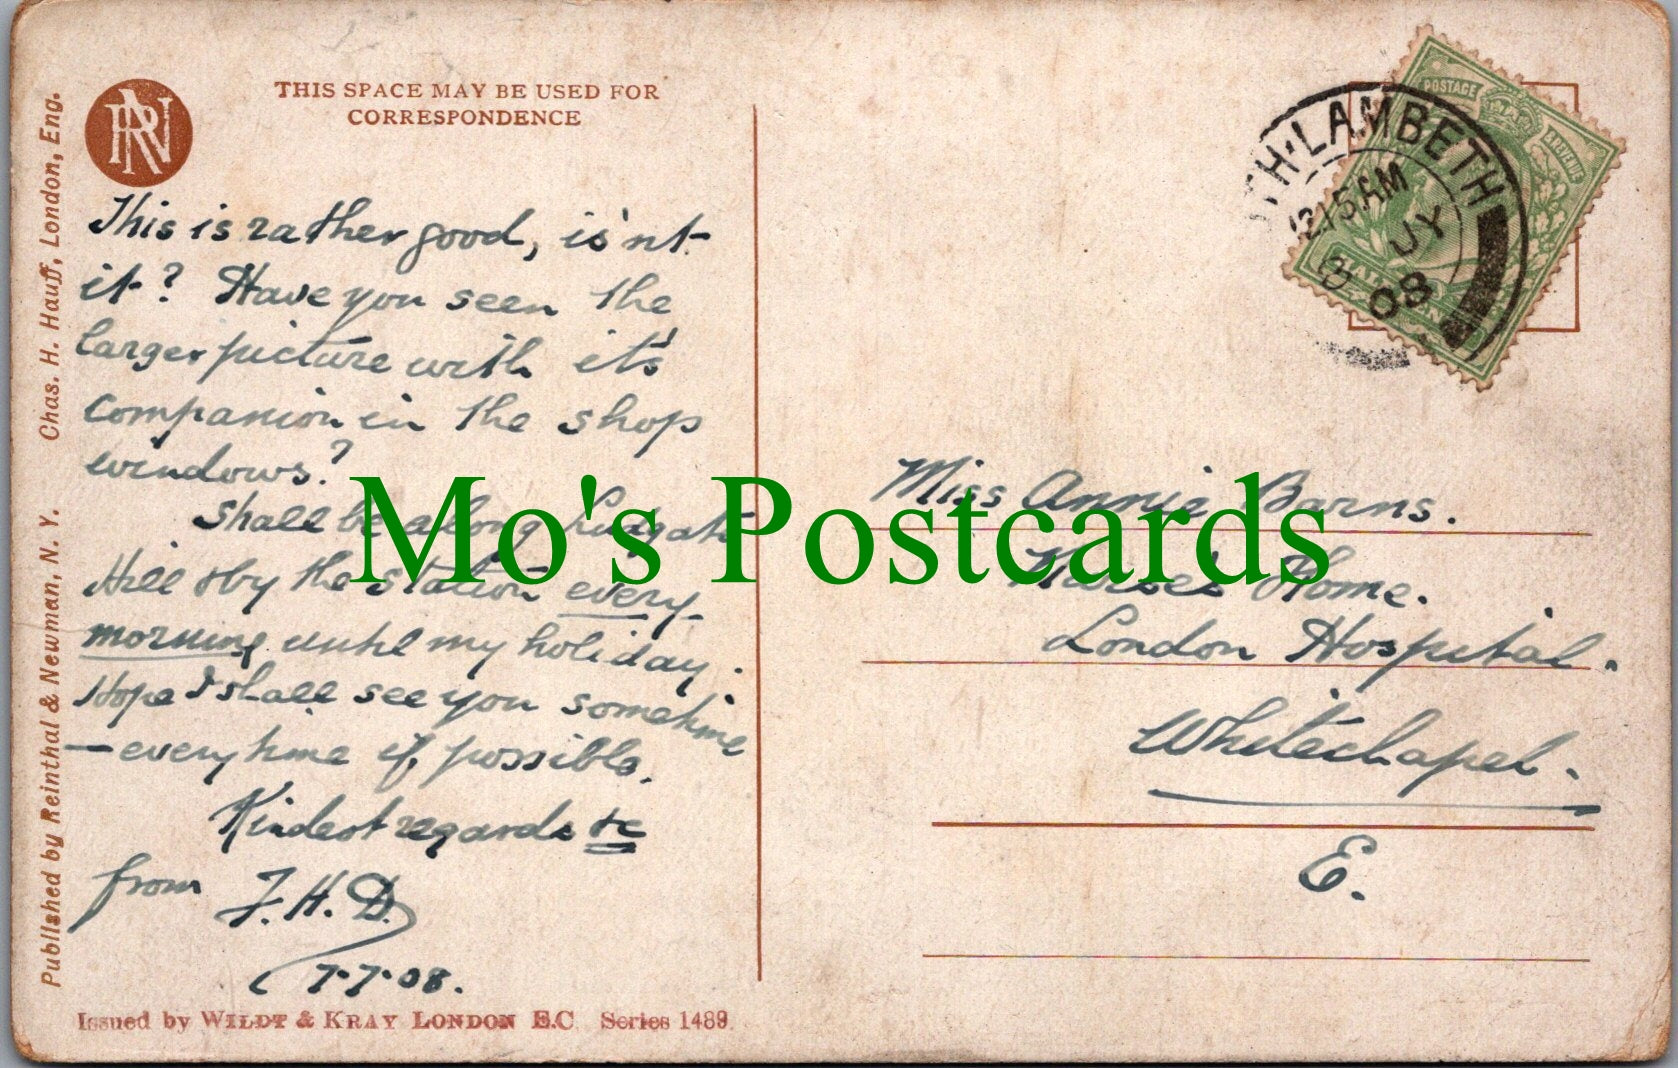 THIS SPACE MAY BE USED FOR
CORRESPONDENCE
RN
Published by Reinthal & Newman, N. Y. Chas. H. Hauff, London, Eng.
This is rather good, is'nt
it? Have you seen the
larger picture with it's
companion in the shop
windows?
Shall be along Ludgate
Hill & by the station every
morning until my holiday.
Hope I shall see you sometime
— everytime if possible.
Kindest regards &c
from F.H.D.
7·7·08.
Issued by WILDT & KRAY LONDON E.C Series 1489
POSTAGE
TH·LAMBETH
1215AM
JY
08
Miss Annie Barns.
Nurses Home.
London Hospital.
Whitechapel.
E.
Mo's Postcards